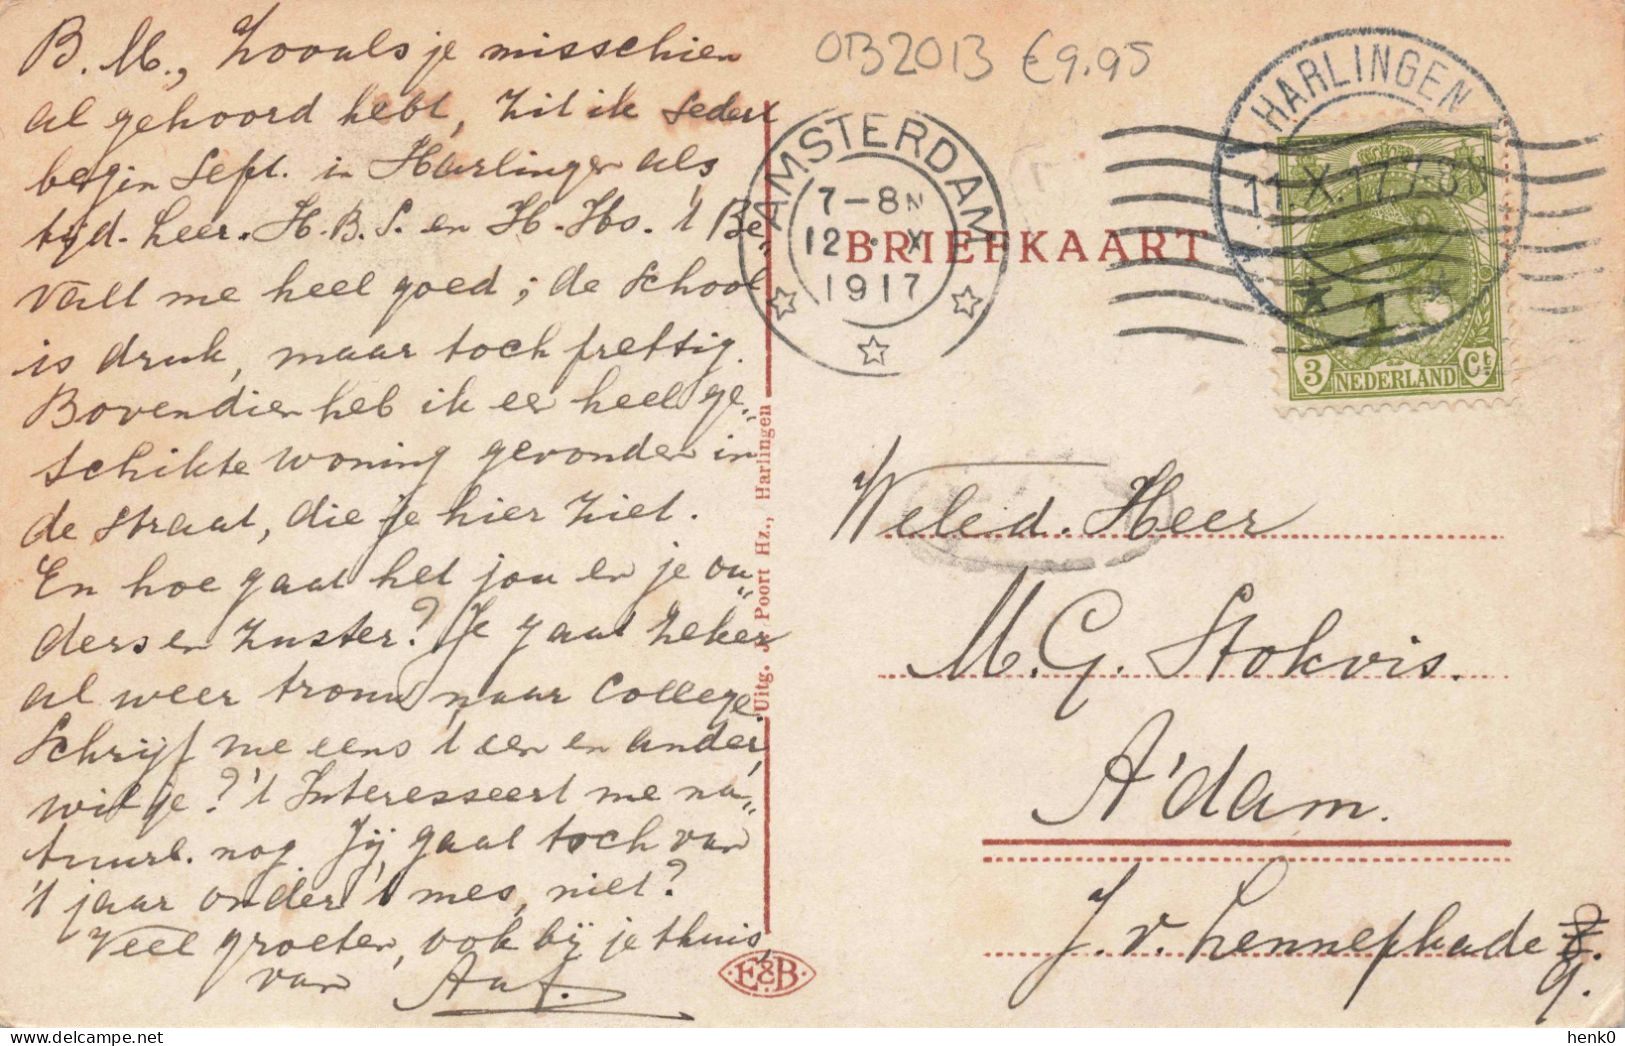 B. M., Zooals je misschien
al gehoord hebt, zit ik sedert
begin Sept. in Harlingen als
tijd. leer. H.B.S. en H. Hs. 't Be„
valt me heel goed; de school
is druk, maar toch prettig.
Bovendien heb ik een heel ge„
schikte woning gevonden in
de straat, die je hier ziet.
En hoe gaat het jou en je ou„
ders en zuster? Je gaat zeker
al weer trouw naar College.
Schrijf me eens 't een en ander,
wil je? 't Interesseert me na„
tuurl. nog. Jij gaat toch van
't jaar onder 't mes, niet?
Veel groeten, ook bij je thuis,
van
OB2013 €9.95
AMSTERDAM
7-8N
12 X
1917
HARLINGEN
11.X.17 7-8N
1
3 NEDERLAND Ct
BRIEFKAART
Uitg. J. Poort Hz., Harlingen
E&B
Weled. Heer
M. G. Stokvis.
A'dam.
J. v. Lennepkade 8.
9.
henk0